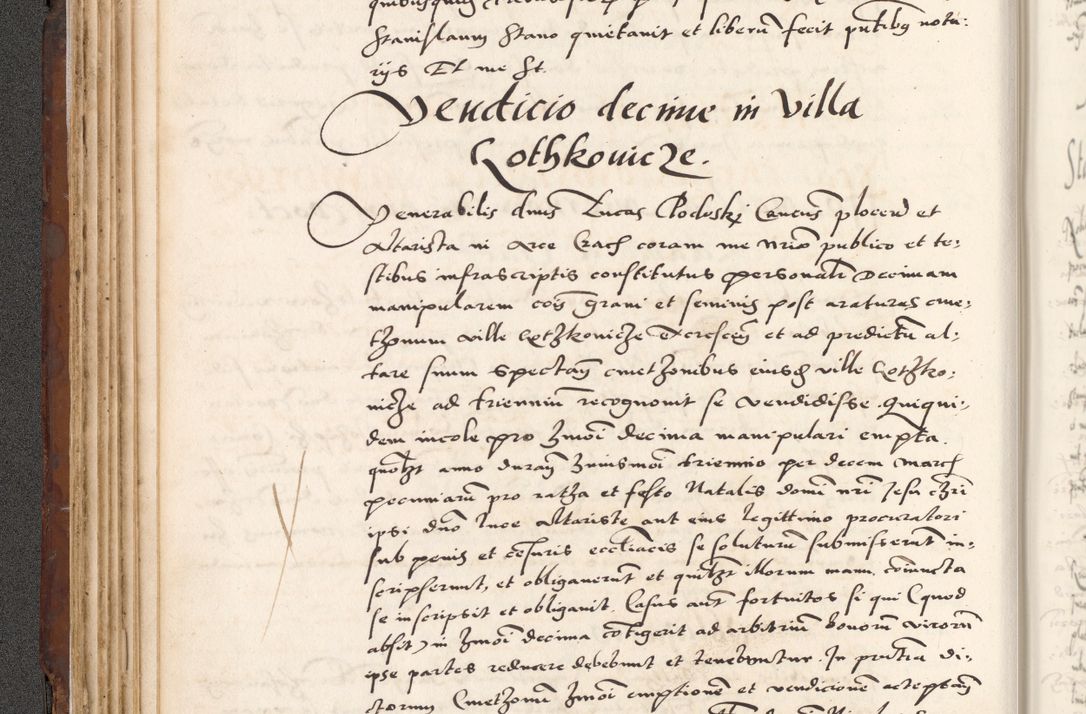 Stanislaum Stano quietauit et liberũ fecit pñtibꝫ nota:
rijs Et me St.
Vendicio decime in Villa
Gothkouicze.
Venerabilis dnũs Lucas Podoskj Cancus plocen̄ et
Altarista in Arce Crac̃ coram me Nrio publico et te:
stibus infrascriptis constitutus personalr̃ Decimam
manipularem cois̃ grani et seminis post araturas cme:
thonum ville Gothkouicze Excrescen̄ et ad predictũ al:
tare suum spectan̄ cmethonibus eiusd̃ ville Gothko:
uicze ad trienniũ recognouit se vendidisse. Quiqui:
dem incole pro hmoĩ decima manipulari empta.
quolt anno duran̄ huiusmoĩ triennio per decem march
pecuniarũ pro ratha et festo Natalis domĩ nrĩ Jesu chri
ipsi dno Luce Altariste aut eius legittimo procuratori
sub penis et cesuris ecclĩacis se soluturũ submiserũt in:
scripserunt, et obligauerũt et quilt illorum manu coniuncta
se inscripsit et obligauit. Casus aut fortuitos si qui (quod
absit) in hmoĩ decima cõtigerit ad arbitriũ bonorũ virorũ
ipse partes reducere debebunt et tenebuntur. In pñtia di:
ctorum Cmethonũ hmoĩ emptionẽ et vendicionẽ acceptan̄